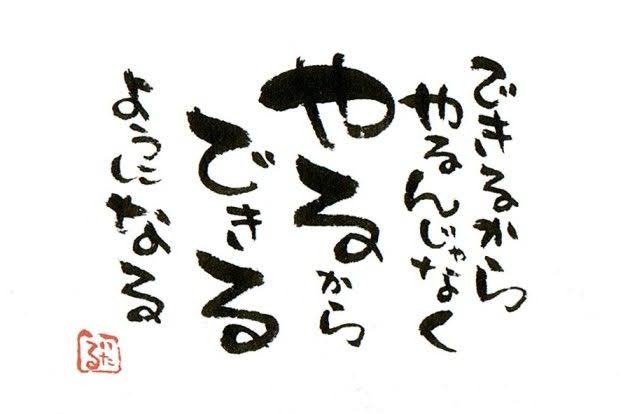 できるから
やるんじゃなく
やるから
できる
ようになる
いたる